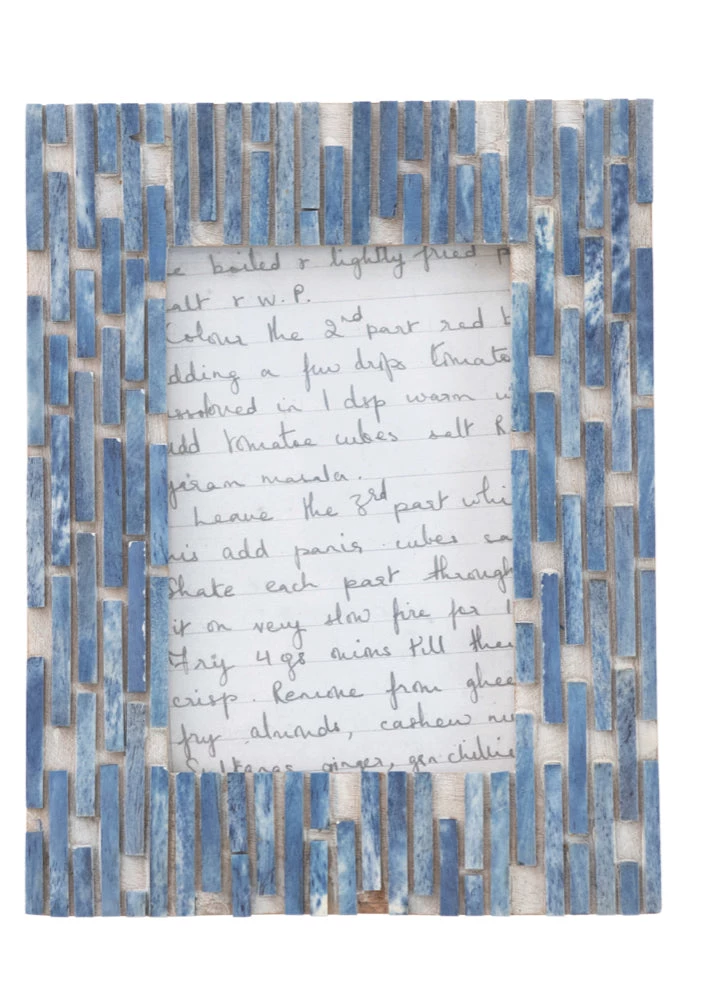 e boiled & lightly fried p
alt & W.P.
Colour the 2nd part red b
dding a few drops tomato
issolved in 1 dsp warm w
add tomatoe cubes salt R.
garam masala.
Leave the 3rd part whi
his add panir cubes sa
Shake each part through
it on very slow fire for 1
Fry 4 gs onions till they
crisp. Remove from ghee
fry almonds, cashew nu
Sultanas ginger, grn chillie